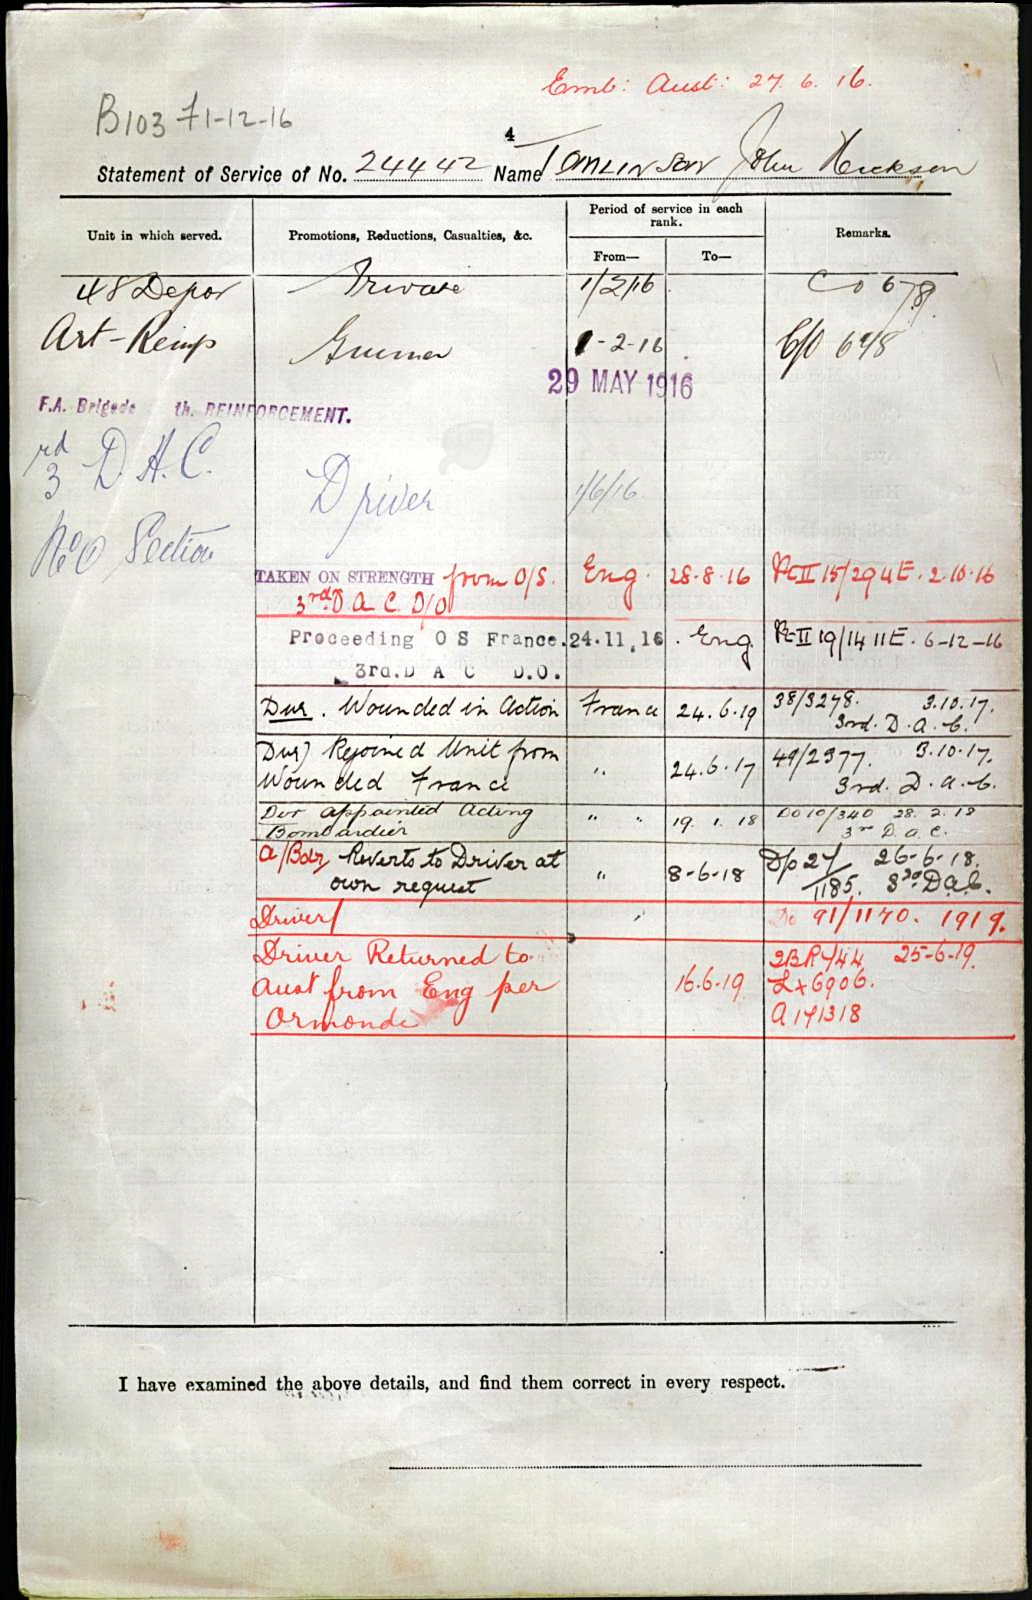 Emb: Aust: 27. 6. 16.
B103 71-12-16
4
Statement of Service of No. 24442 Name Tomlinson John Hickson
Unit in which served. Promotions, Reductions, Casualties, &c. Period of service in each rank. From— To— Remarks.
48 Depot Private 1/2/16 C O 678
Art-Reinfs Gunner 1-2-16 C/O 678
29 MAY 1916
F.A. Brigade th. REINFORCEMENT.
3rd D. A. C. Driver 1/6/16
Section
TAKEN ON STRENGTH from O/S. Eng. 28-8-16 Pt II 15/294E. 2.10.16
3rd D A C D/O
Proceeding O S France. 24.11.16. Eng Pt II 19/1411E. 6-12-16
3rd. D A C D.O.
Dvr. Wounded in Action France 24.6.19 38/3278. 3.10.17.
3rd. D. A. C.
Dvr) Rejoined Unit from " 24.6.17 49/2977. 3.10.17.
Wounded France 3rd. D. A. C.
Dvr appointed Acting " " 19. 1. 18 DO10/340 28. 2. 18
Bombardier 3rd D. A. C.
A/Bdr Reverts to Driver at " 8-6-18 D/o 27/1185. 26-6-18.
own request 3rd D.A.C.
Driver/ " Do 91/1170. 1919.
Driver Returned to 2BR/44 25-6-19.
Aust from Eng per 16.6.19 6906.
Ormonde
I have examined the above details, and find them correct in every respect.